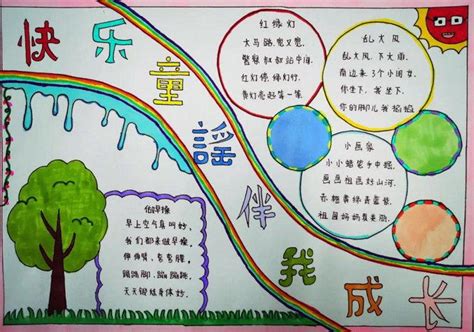 快乐童谣伴我成长
红绿灯
大马路,宽又宽,
警察叔叔站中间,
红灯停,绿灯行,
黄灯亮起等一等。
刮大风
刮大风,下大雨,
南边来了个小闺女,
你坐下,我坐下,
你的脚儿我
小画家
小小蜡笔手中握,
画画祖国好山河,
赤橙黄绿青蓝紫,
祖国妈妈真美丽。
做早操
早上空气真叫好,
我们都来做早操,
伸伸臂,弯弯腰,
踢踢脚,蹦蹦跳,
天天锻炼身体好。